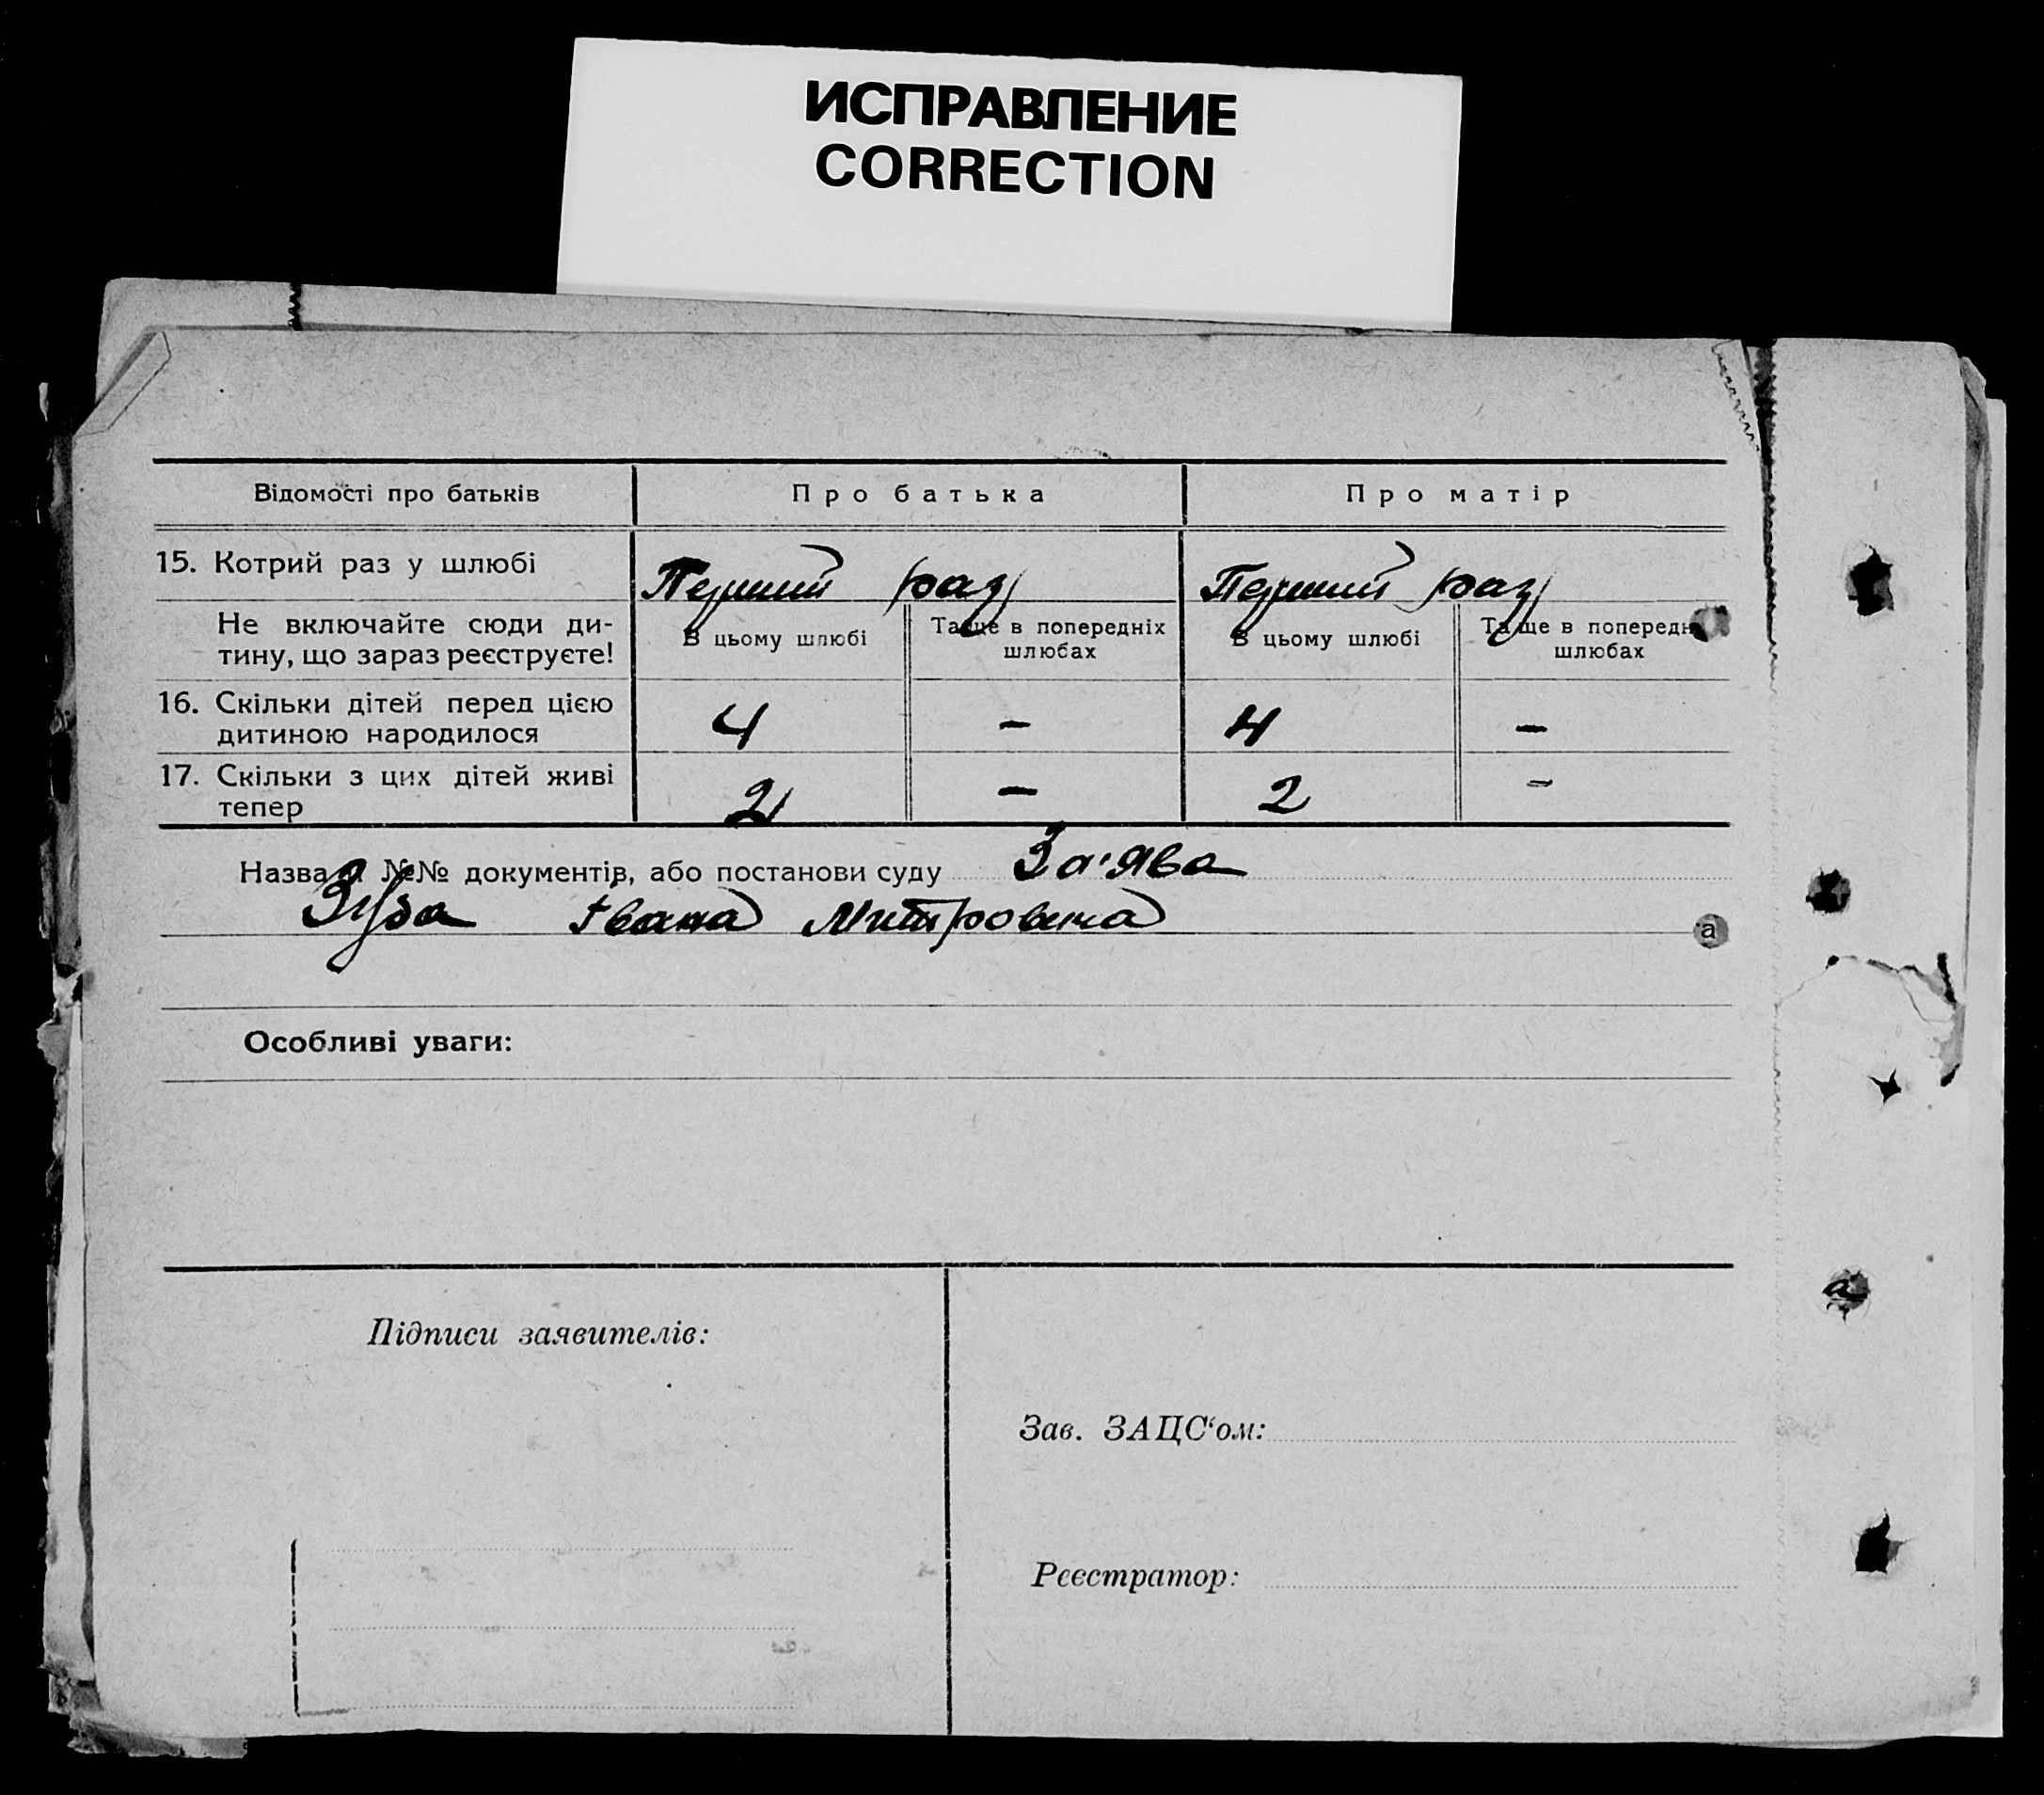 ИСПРАВЛЕНИЕ
CORRECTION
Відомості про батьків
Про батька
Про матір
15. Котрий раз у шлюбі
Перший раз
Перший раз
Не включайте сюди ди-
тину, що зараз реєструєте!
В цьому шлюбі
Та ще в попередніх
шлюбах
В цьому шлюбі
Та ще в попередн
шлюбах
16. Скільки дітей перед цією
дитиною народилося
4
–
4
–
17. Скільки з цих дітей живі
тепер
2
–
2
–
Назва і №№ документів, або постанови суду За'ява
Зуба Івана Митровича
а
Особливі уваги:
Підписи заявителів:
Зав. ЗАЦС‘ом:
Реєстратор: